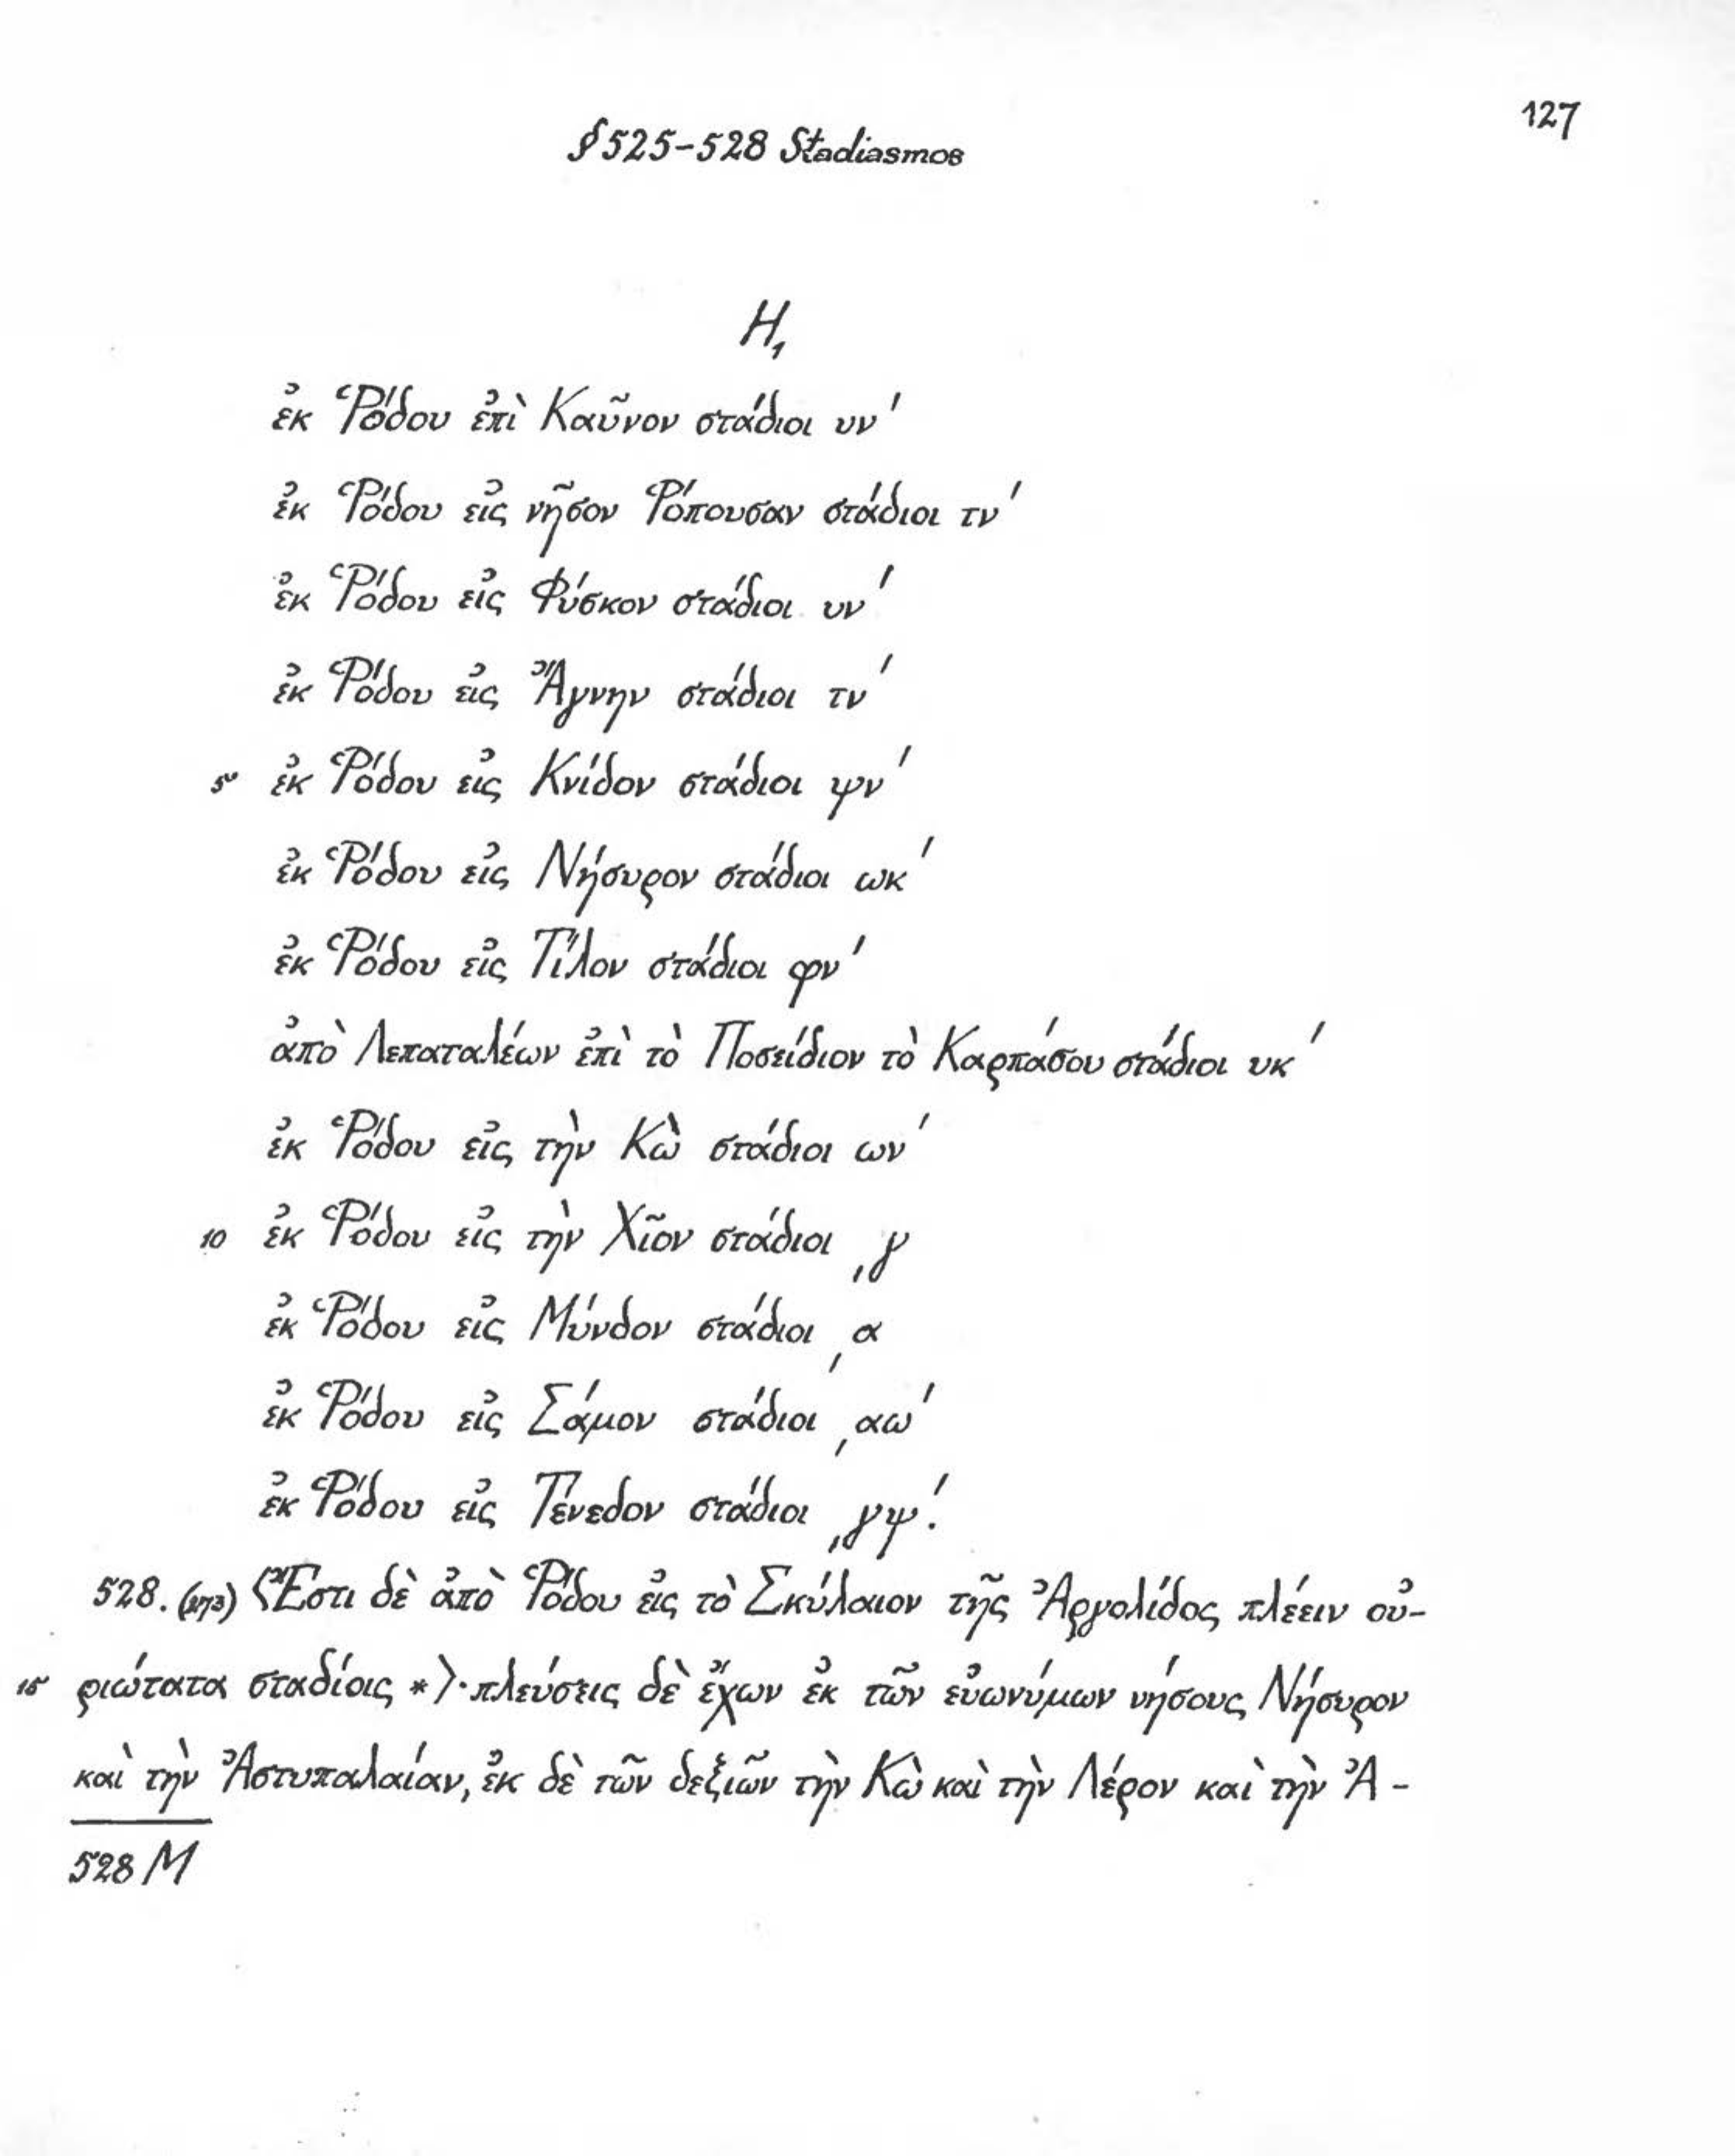 127
§ 525-528 Stadiasmos
H₁
ἐκ Ῥόδου ἐπὶ Καῦνον στάδιοι υν'
ἐκ Ῥόδου εἰς νῆσον Ῥόπουσαν στάδιοι τν'
ἐκ Ῥόδου εἰς Φύσκον στάδιοι υν'
ἐκ Ῥόδου εἰς Ἄγνην στάδιοι τν'
5 ἐκ Ῥόδου εἰς Κνίδον στάδιοι ψν'
ἐκ Ῥόδου εἰς Νήσυρον στάδιοι ωκ'
ἐκ Ῥόδου εἰς Τίλον στάδιοι φν'
ἀπὸ Λεπαταλέων ἐπὶ τὸ Ποσείδιον τὸ Καρπάσου στάδιοι υκ'
ἐκ Ῥόδου εἰς τὴν Κὼ στάδιοι ων'
10 ἐκ Ῥόδου εἰς τὴν Χῖον στάδιοι ͵γ
ἐκ Ῥόδου εἰς Μύνδον στάδιοι ͵α
ἐκ Ῥόδου εἰς Σάμον στάδιοι ͵αω'
ἐκ Ῥόδου εἰς Τένεδον στάδιοι ͵γψ'.
528. (273) 〈Ἔστι δὲ ἀπὸ Ῥόδου εἰς τὸ Σκύλαιον τῆς Ἀργολίδος πλέειν οὐ-
15 ριώτατα σταδίοις *〉· πλεύσεις δὲ ἔχων ἐκ τῶν εὐωνύμων νήσους Νήσυρον
καὶ τὴν Ἀστυπαλαίαν, ἐκ δὲ τῶν δεξιῶν τὴν Κὼ καὶ τὴν Λέρον καὶ τὴν Ἀ-
528 M